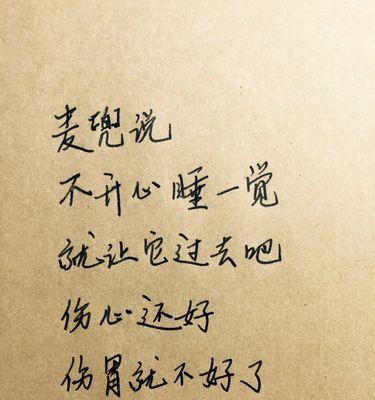 麦兜说
不开心睡一觉
就让它过去吧
伤心还好
伤胃就不好了